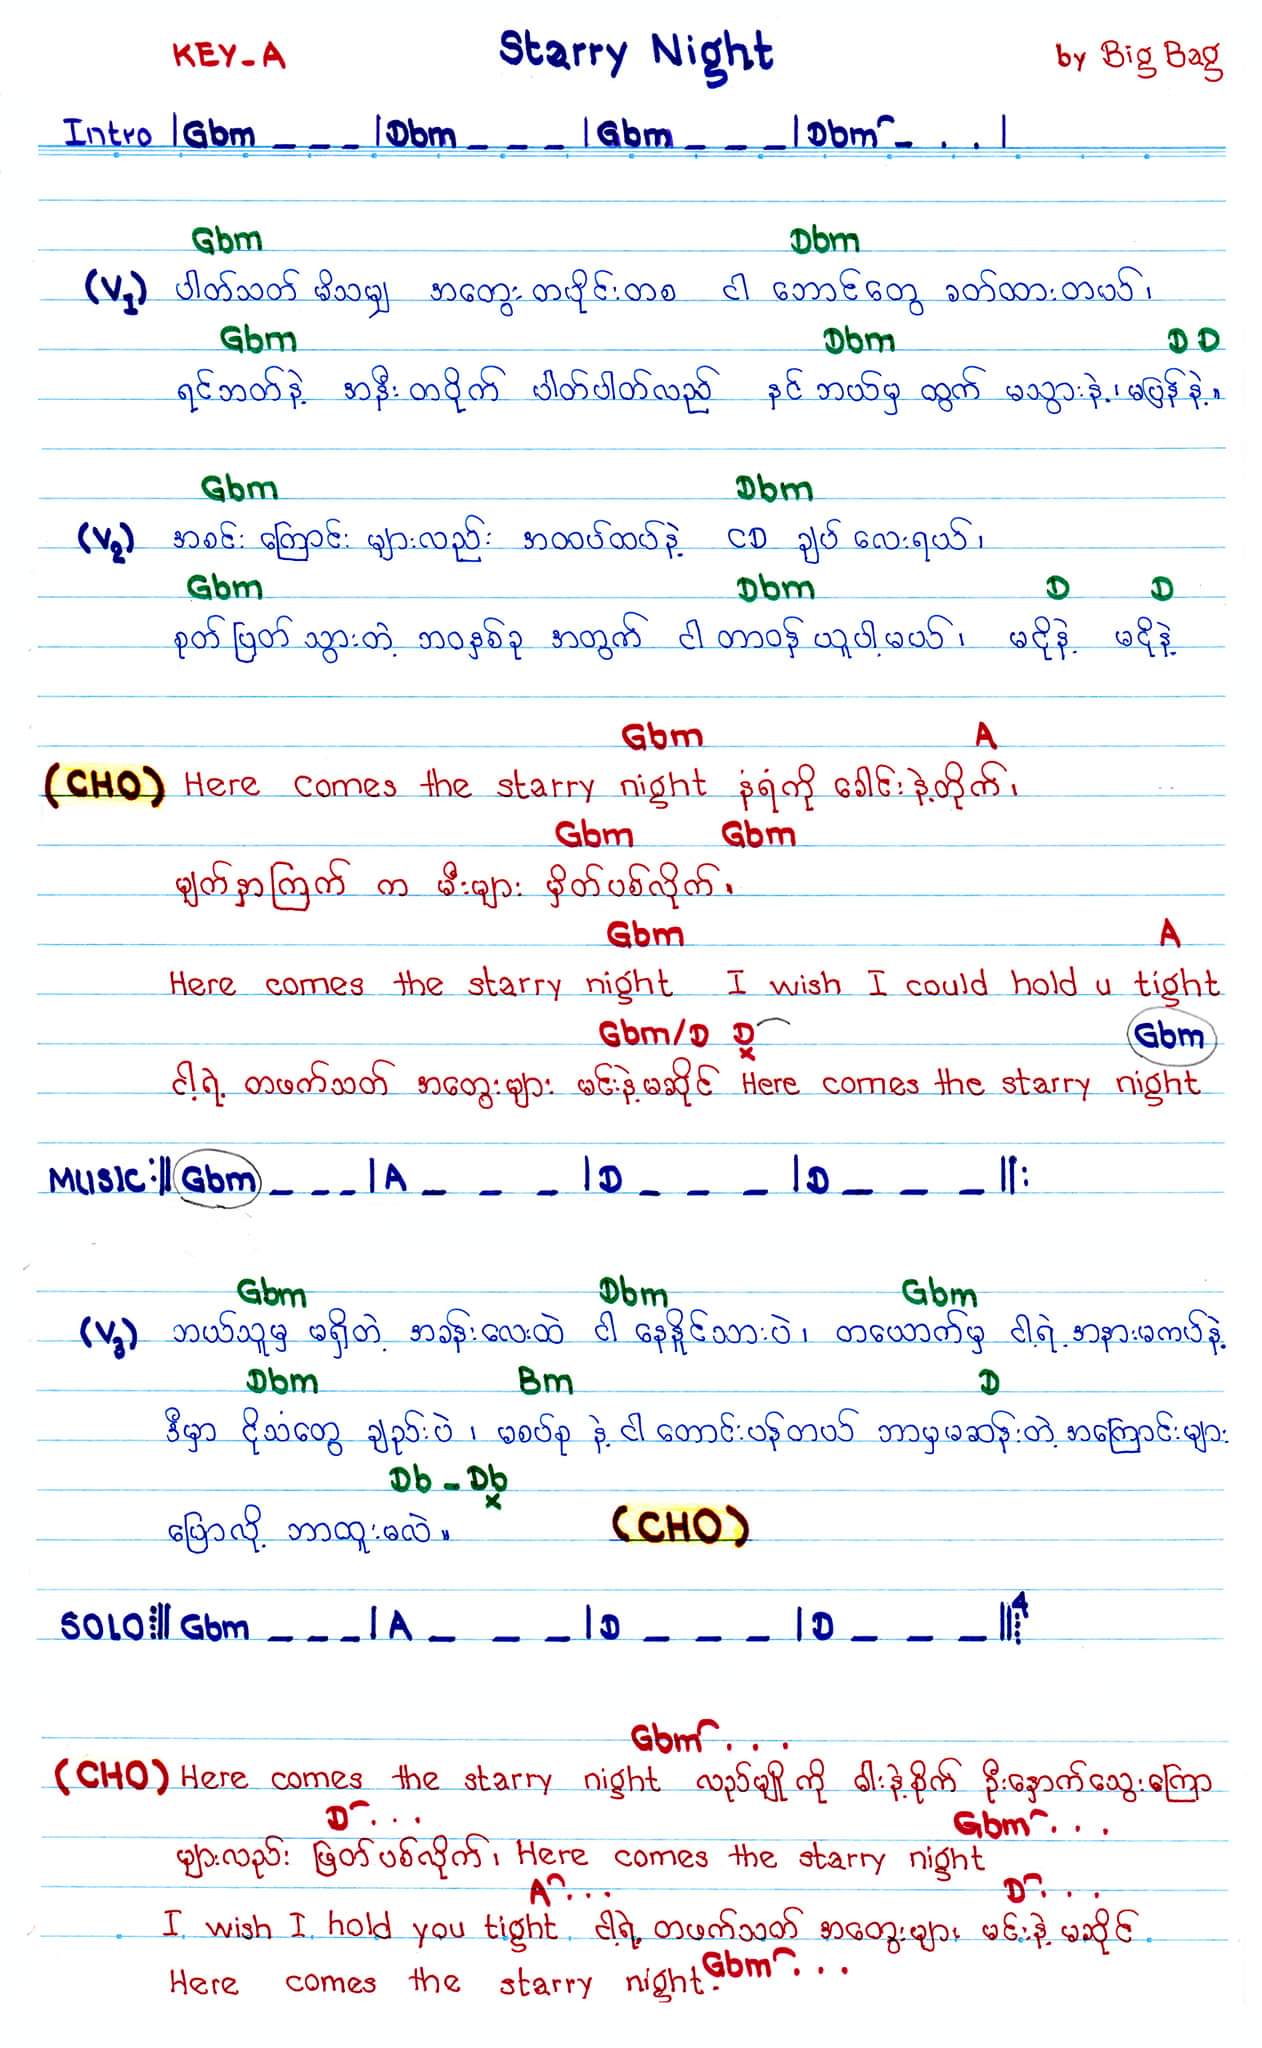 KEY-A Starry Night by Big Bag
Intro |Gbm _ _ _ |Dbm _ _ _ |Gbm _ _ _ |Dbm⌒ _ . . |
Gbm Dbm
(V1) ပါတ်သတ် မိသမျှ အတွေး တပိုင်းတစ ငါ ဘောင်တွေ ခတ်ထားတယ်၊
Gbm Dbm D D
ရင်ဘတ်နဲ့ အနီးတဝိုက် ပါတ်ပါတ်လည် နင် ဘယ်မှ ထွက် မသွားနဲ့၊ မပြန်နဲ့။
Gbm Dbm
(V2) အစင်း ကြောင်း များလည်း အထပ်ထပ်နဲ့ CD ချပ် လေးရယ်၊
Gbm Dbm D D
စုတ်ပြတ် သွားတဲ့ ဘဝနှစ်ခု အတွက် ငါ တာဝန် ယူပါ့မယ်၊ မငိုနဲ့ မငိုနဲ့
Gbm A
(CHO) Here comes the starry night နံရံကို ခေါင်းနဲ့တိုက်၊
Gbm Gbm
မျက်နှာကြက် က မီးများ မှိတ်ပစ်လိုက်၊
Gbm A
Here comes the starry night I wish I could hold u tight
Gbm/D D⌒ x Gbm
ငါ့ရဲ့ တဖက်သတ် အတွေးများ မင်းနဲ့မဆိုင် Here comes the starry night
MUSIC:|| Gbm _ _ _ |A _ _ _ |D _ _ _ |D _ _ _ ||:
Gbm Dbm Gbm
(V3) ဘယ်သူမှ မရှိတဲ့ အခန်းလေးထဲ ငါ နေနိူင်သားပဲ၊ တယောက်မှ ငါ့ရဲ့ အနားမကပ်နဲ့
Dbm Bm D
ဒီမှာ ငိုသံတွေ ချည်းပဲ ၊ မစပ်စု နဲ့ ငါ တောင်းပန်တယ် ဘာမှမဆန်းတဲ့ အကြောင်းများ
Db - Db x
ပြောလို့ ဘာထူးမလဲ။ (CHO)
SOLO:|| Gbm _ _ _ |A _ _ _ |D _ _ _ |D _ _ _ ||: 4
Gbm⌒ . . .
(CHO) Here comes the starry night လည်မျိုကို ဓါးနဲ့စိုက် ဦးနှောက်သွေးကြော
D⌒ . . . Gbm⌒ . . .
များလည်း ဖြတ်ပစ်လိုက်၊ Here comes the starry night
A⌒ . . . D⌒ . . .
I wish I hold you tight ငါ့ရဲ့ တဖက်သတ် အတွေးများ မင်းနဲ့ မဆိုင်
Here comes the starry night. Gbm⌒ . . .